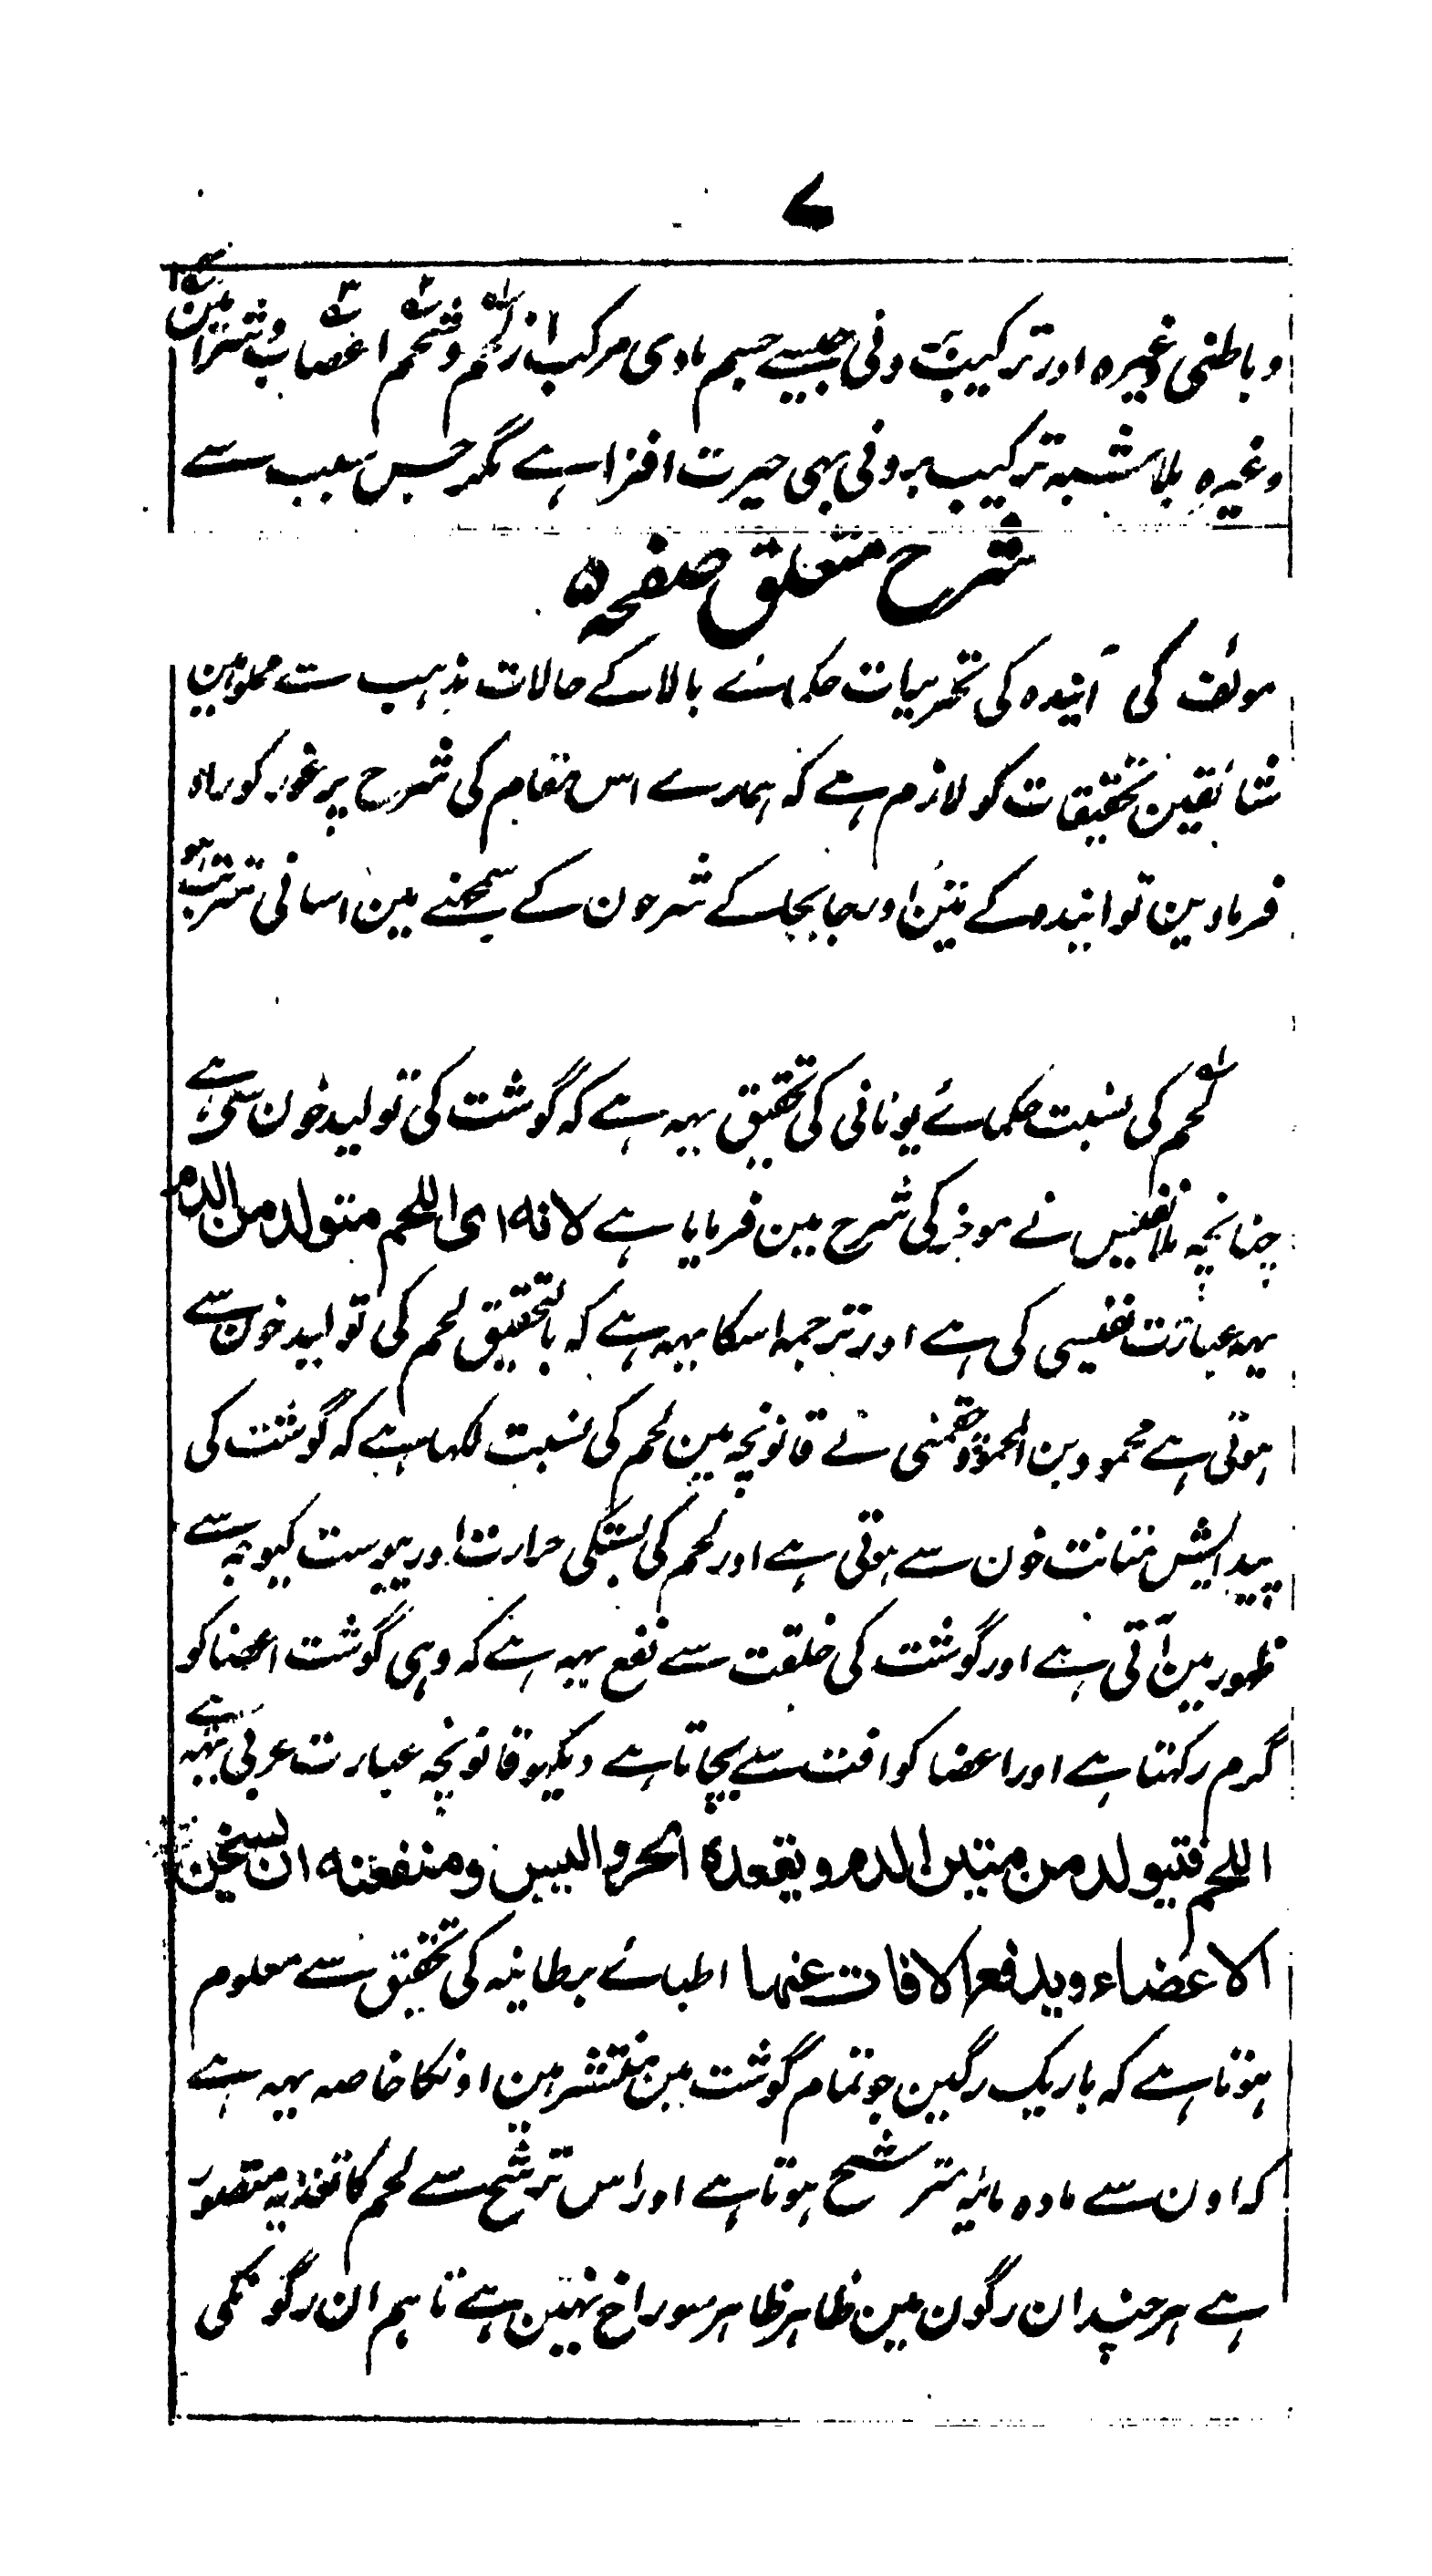 ۷
و باطنی وغیرہ اور ترکیب بیرونی جیسے جسم مادی مرکب از لحم۱ و شحم۲ اعصاب۳ و شرائین۴
وغیرہ بلا شبہ ترکیب بیرونی بہی حیرت افزا ہے مگر جس سبب سے
شرح متعلق صفحہ ۵
مولف کی آیندہ کی تحریرات حکمائے بالا کے حالات مذہب سے مملو ہین
شایقین تحقیقات کو لازم ہے کہ ہمارے اس مقام کی شرح پر غور کو راہ
فرماوین تو ایندہ کے متن اور جابجا کے شرحون کے سمجھنے مین اسانی مترتب ہو
لحم۱ کی نسبت حکمائے یونانی کی تحقیق یہہ ہے کہ گوشت کی تولید خون سے ہے
چنانچہ ملا نفیس نے موجز کی شرح مین فرمایا ہے لانه ای اللحم متولد من الدم
یہہ عبارت نفیسی کی ہے اور ترجمہ اسکا یہہ ہے کہ بالتحقیق لحم کی تولید خون سے
ہوتی ہے محمود بن المحمود چغمنی نے قانونچہ مین لحم کی نسبت لکہا ہے کہ گوشت کی
پیدایش متانت خون سے ہوتی ہے اور لحم کی بستگی حرارت اور یبوست کیوجہ سے
ظہور مین آتی ہے اور گوشت کی خلقت سے نفع یہہ ہے کہ وہی گوشت اعضا کو
گرم رکہتا ہے اور اعضا کو افت سے بچاتا ہے دیکہو قانونچہ عبارت عربی یہہ ہے
اللحم فتیولد من متین الدم و یعقدہ الحر والیبس ومنفعته ان یسخن
الاعضاء ویدفع الافات عنہا اطبائے بریطانیہ کی تحقیق سے معلوم
ہوتا ہے کہ باریک رگین جو تمام گوشت مین منتشر ہین اونکا خاصہ یہہ ہے
کہ اون سے مادہ مائیہ مترشح ہوتا ہے اور اس ترشح سے لحم کا تغذیہ متصور
ہے ہر چند ان رگون مین ظاہر ظاہر سوراخ نہین ہے تاہم ان رگونکی